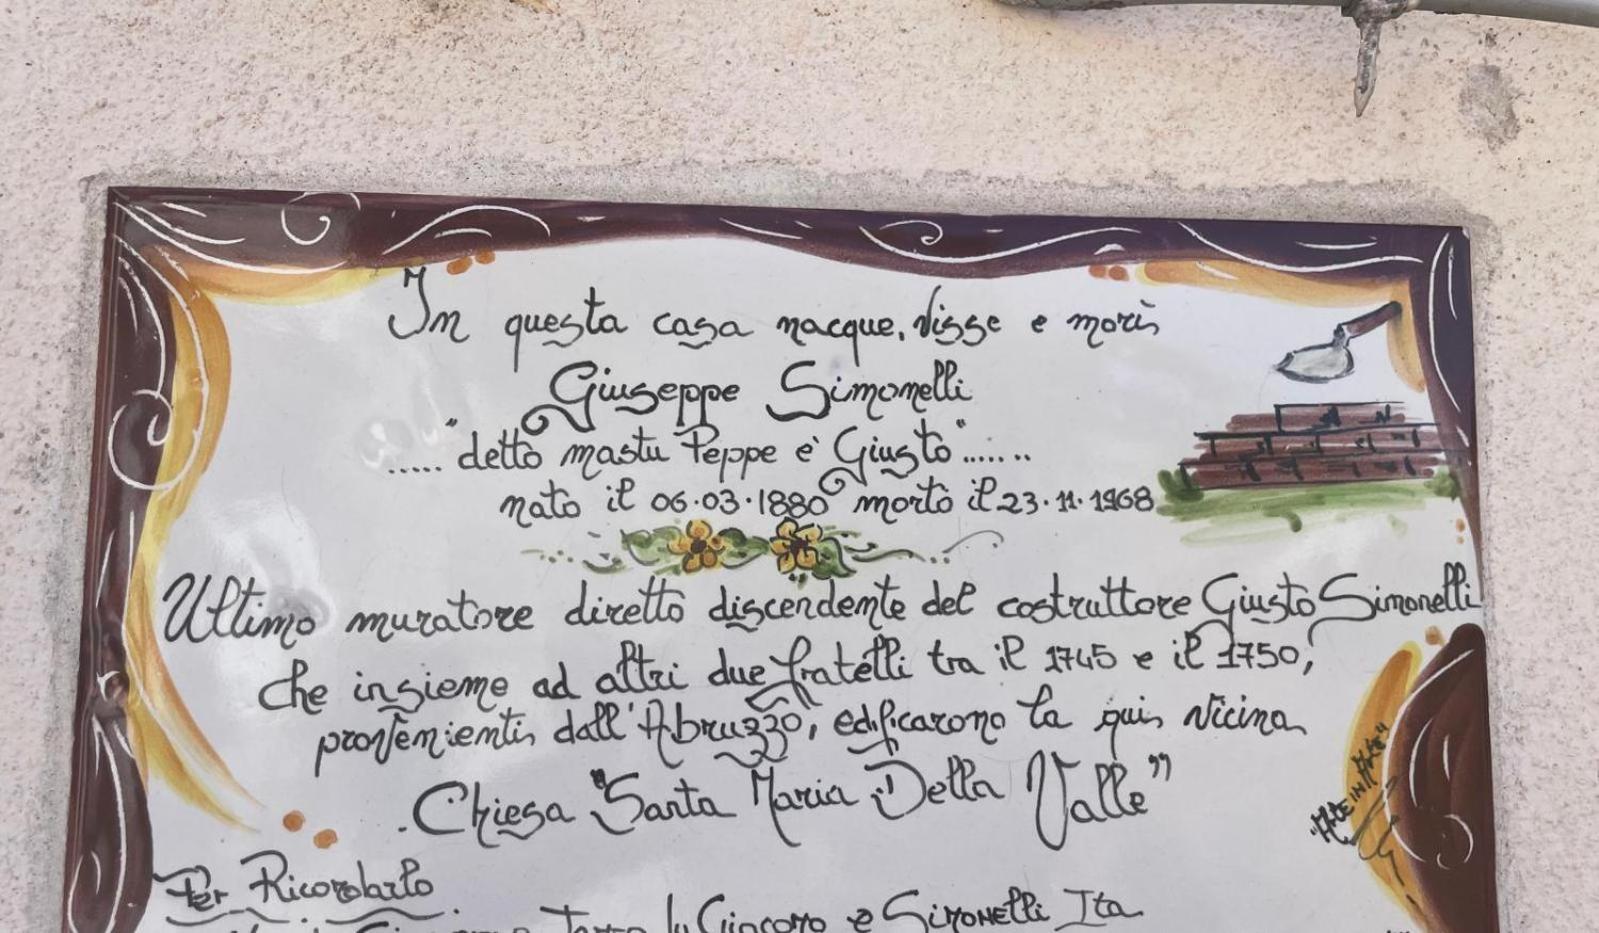 In questa casa nacque, visse e morì
Giuseppe Simonelli
....."detto mastu Peppe e' Giusto"......
nato il 06.03.1880 morto il 23.11.1968
Ultimo muratore diretto discendente del costruttore Giusto Simonelli
che insieme ad altri due fratelli tra il 1745 e il 1750,
provenienti dall'Abruzzo, edificarono la qui vicina
Chiesa "Santa Maria Della Valle"
Per Ricordarlo
Giacomo e Simonelli Ita